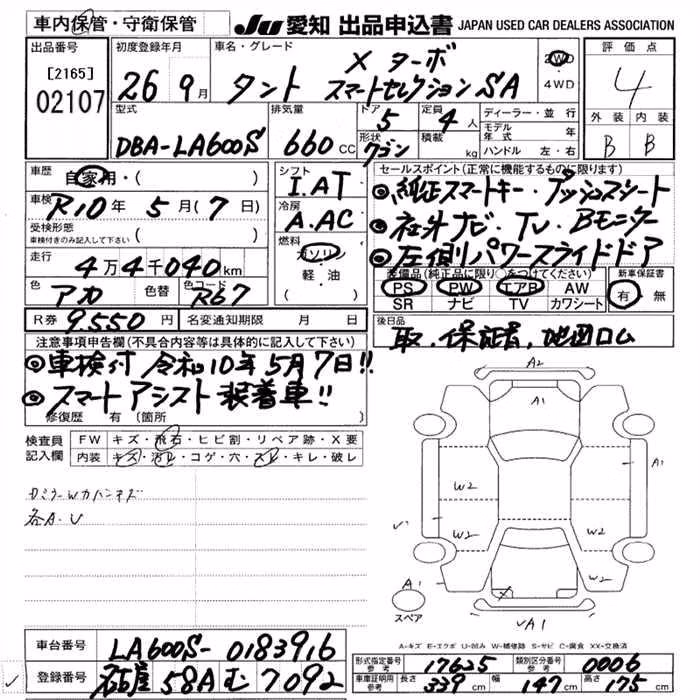 車内保管・守衛保管
JU 愛知 出品申込書 JAPAN USED CAR DEALERS ASSOCIATION
出品番号 [2165] 02107
初度登録年月 26年9月
車名・グレード タント X ターボ スマートセレクションSA
2WD ・4WD
評価点 4
外装 B 内装 B
型式 DBA-LA600S
排気量 660cc
ドア 5 形状 ワゴン
定員 4人 積載 kg
ディーラー・並行
モデル年式 年
ハンドル 左・右
車歴 自家用・( )
車検 R10年5月(7日)
受検形態 車検付きのみ記入して下さい ( )
走行 4万4千040km
色 アカ 色替 色コード R67
シフト I.AT
冷房 A.AC
燃料 ガソリン 軽・油
セールスポイント(正常に機能するものに限ります)
◎純正スマートキー・プッシュスタート
◎社外ナビ・TV・Bモニター
◎左側パワースライドドア
装備品(純正品に限り○をつけてください)
PS PW エアB AW
SR ナビ TV カワシート
新車保証書 有・無
R券 9.550円 名変通知期限 月 日
後日品 取.保証書,地図ロム
注意事項申告欄(不具合内容等は具体的に記入して下さい)
◎車検付 令和10年5月7日!!
◎スマートアシスト装着車!!
修復歴 有 (箇所 )
検査員記入欄
FW キズ・飛石・ヒビ割・リペア跡・X要
内装 キズ・汚レ・コゲ・穴・スレ・キレ・破レ
各A.U
A2
A1
A1
W2
W2
W2
W2
W2
A1
A1
X
スペア
A1
A-キズ E-エクボ U-凹み W-補修跡 S-サビ C-腐食 XX-交換済
車台番号 LA600S-0183916
登録番号 名古屋 58A む 7092
形式指定番号 参考 17625 類別区分番号 参考 0006
車庫証明用 参考 長さ 339cm 幅 147cm 高さ 175cm